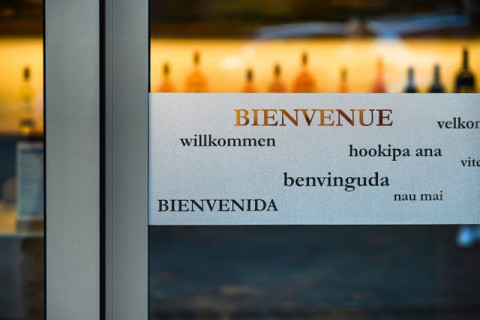 BIENVENUE
velkom
willkommen
hookipa ana
vite
benvinguda
nau mai
BIENVENIDA